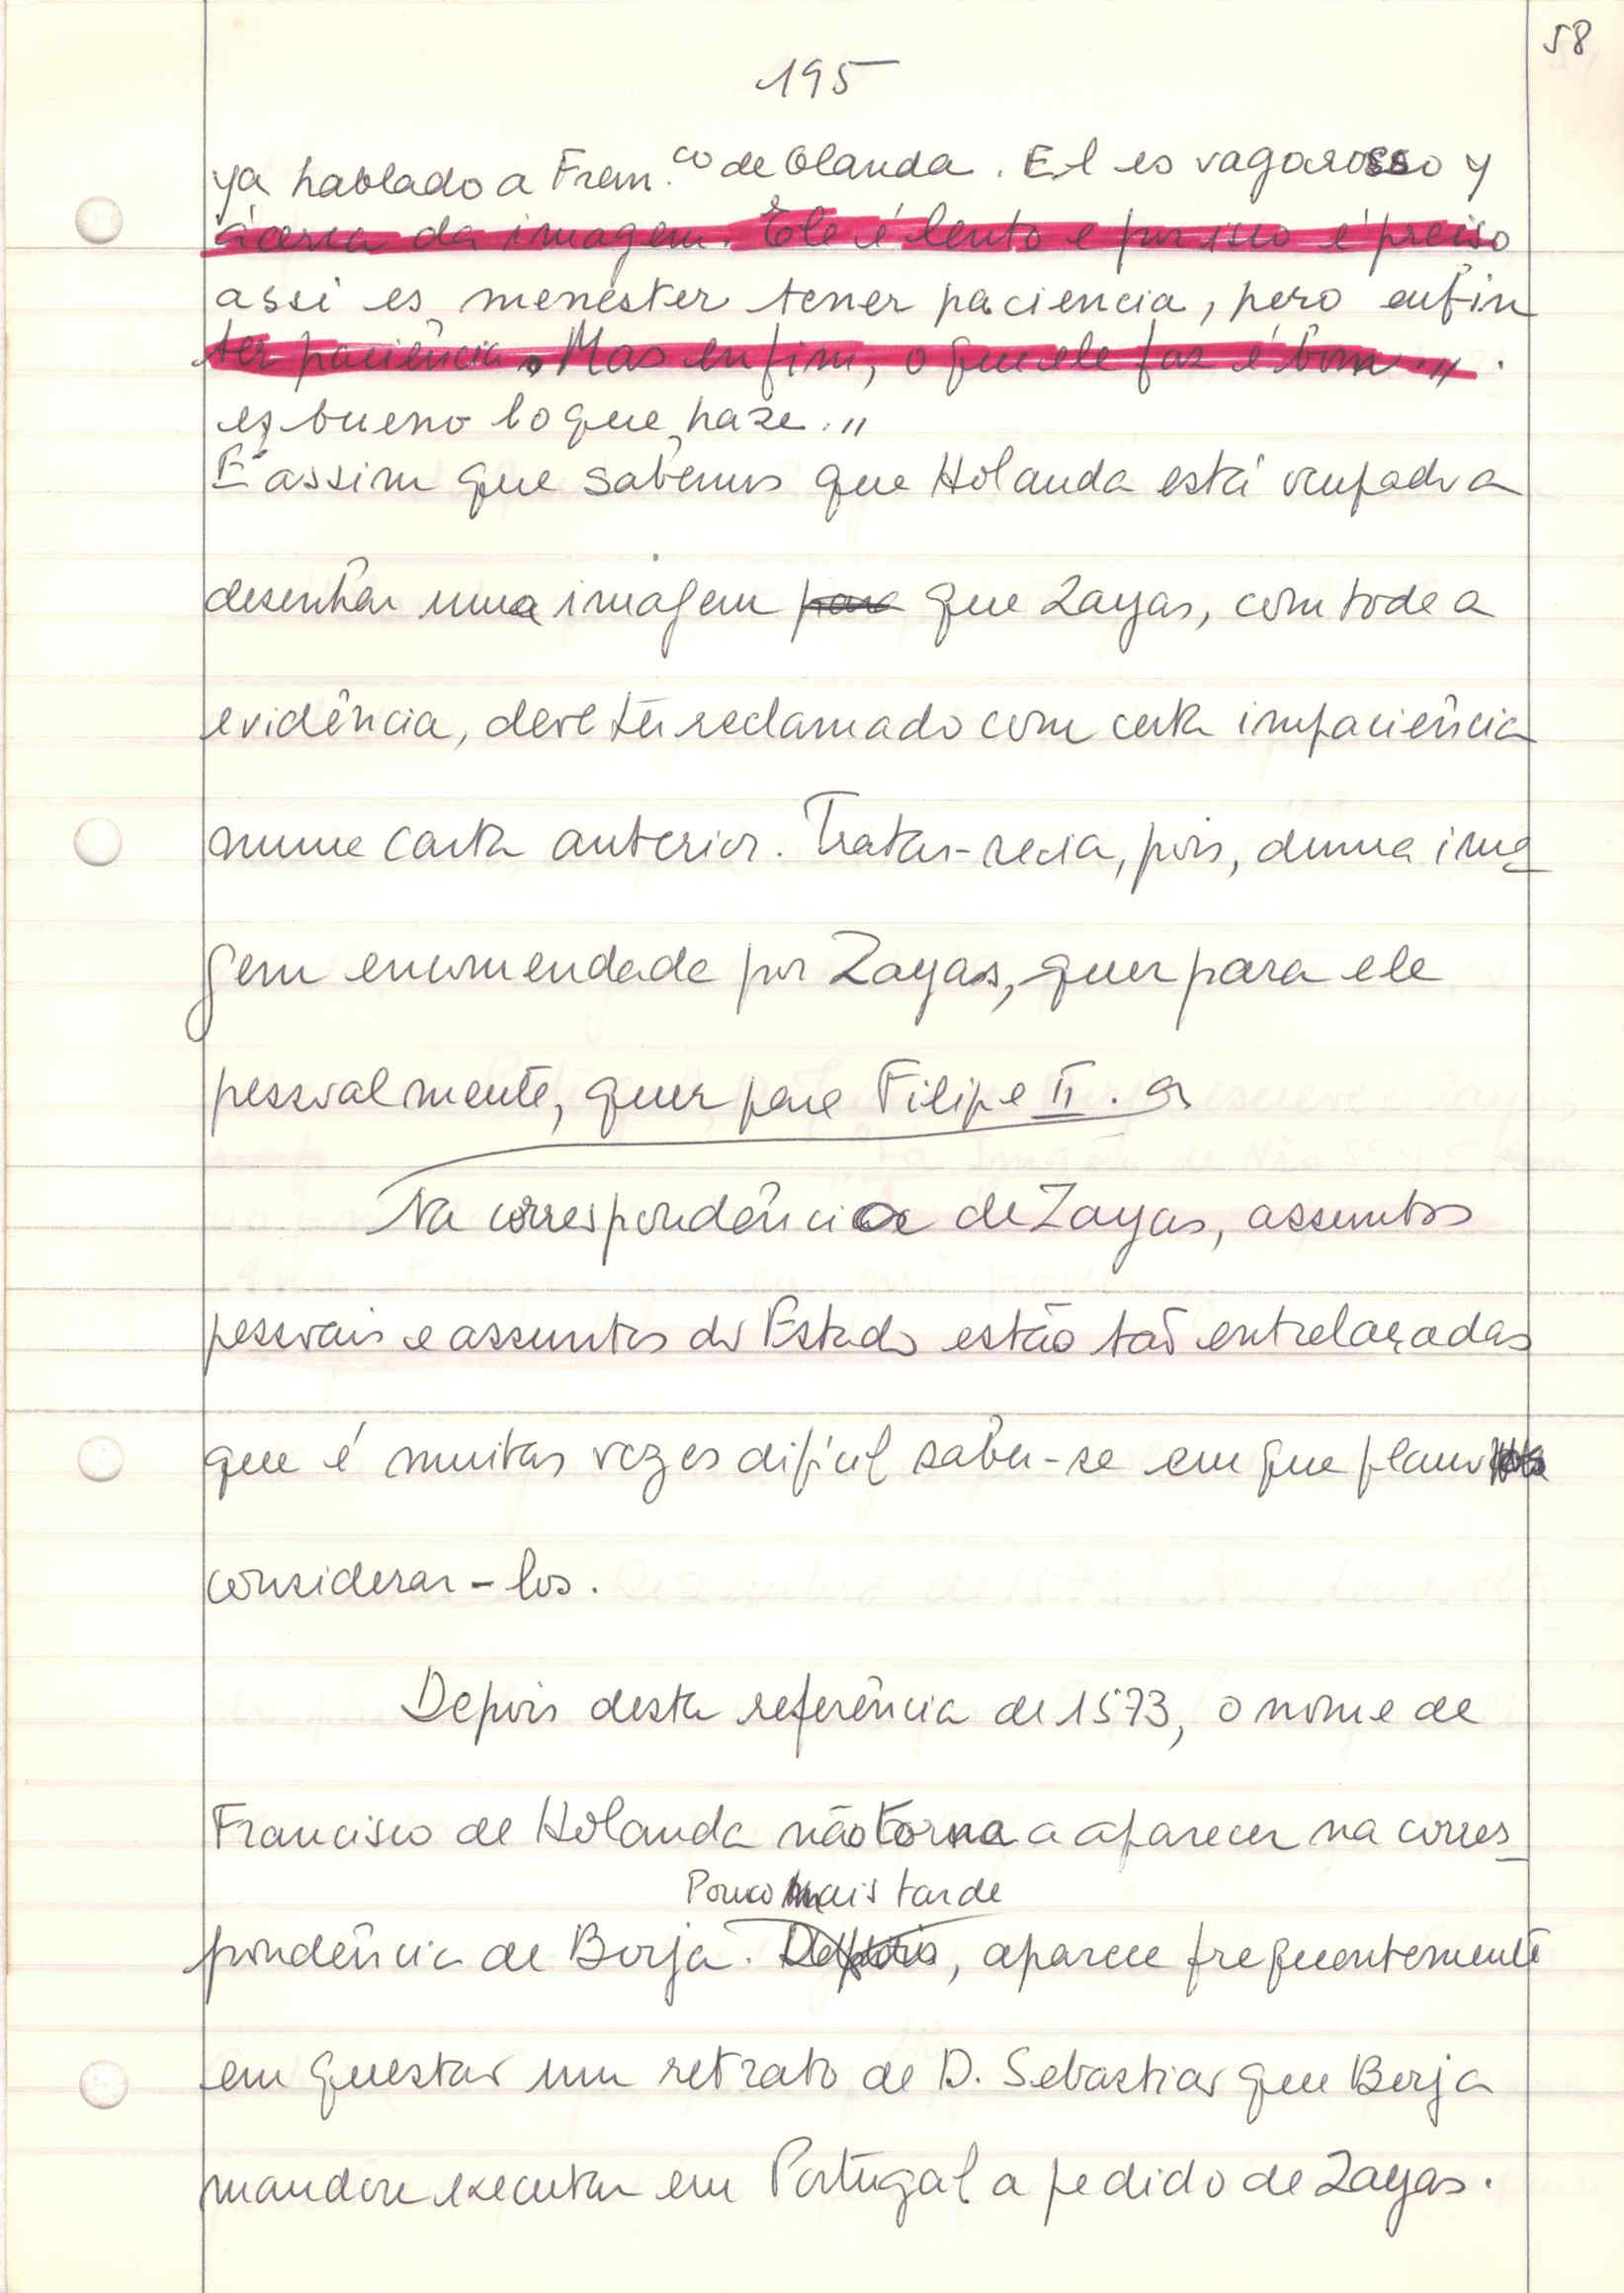 58
195
ya hablado a Fran.co de Olanda. El es vagaroso y
ácerca da imagem. Ele é lento e por isso é preciso
assi es menester tener paciencia, pero enfin
ter paciência. Mas enfim, o que ele faz é bom."
es bueno lo que haze."
É assim que sabemos que Holanda está ocupado a
desenhar uma imagem para que Zayas, com toda a
evidência, deve ter reclamado com certa impaciência
numa carta anterior. Tratar-se-ia, pois, duma ima
gem encomendada por Zayas, quer para ele
pessoalmente, quer para Filipe II.
Na correspondência de Zayas, assuntos
pessoais e assuntos do Estado estão tão entrelaçados
que é muitas vezes difícil saber-se em que plano
considerar-los.
Depois desta referência de 1573, o nome de
Francisco de Holanda não torna a aparecer na corres
Pouco mais tarde
pondência de Borja. Depois, aparece frequentemente
em questão um retrato de D. Sebastião que Borja
mandou executar em Portugal a pedido de Zayas.